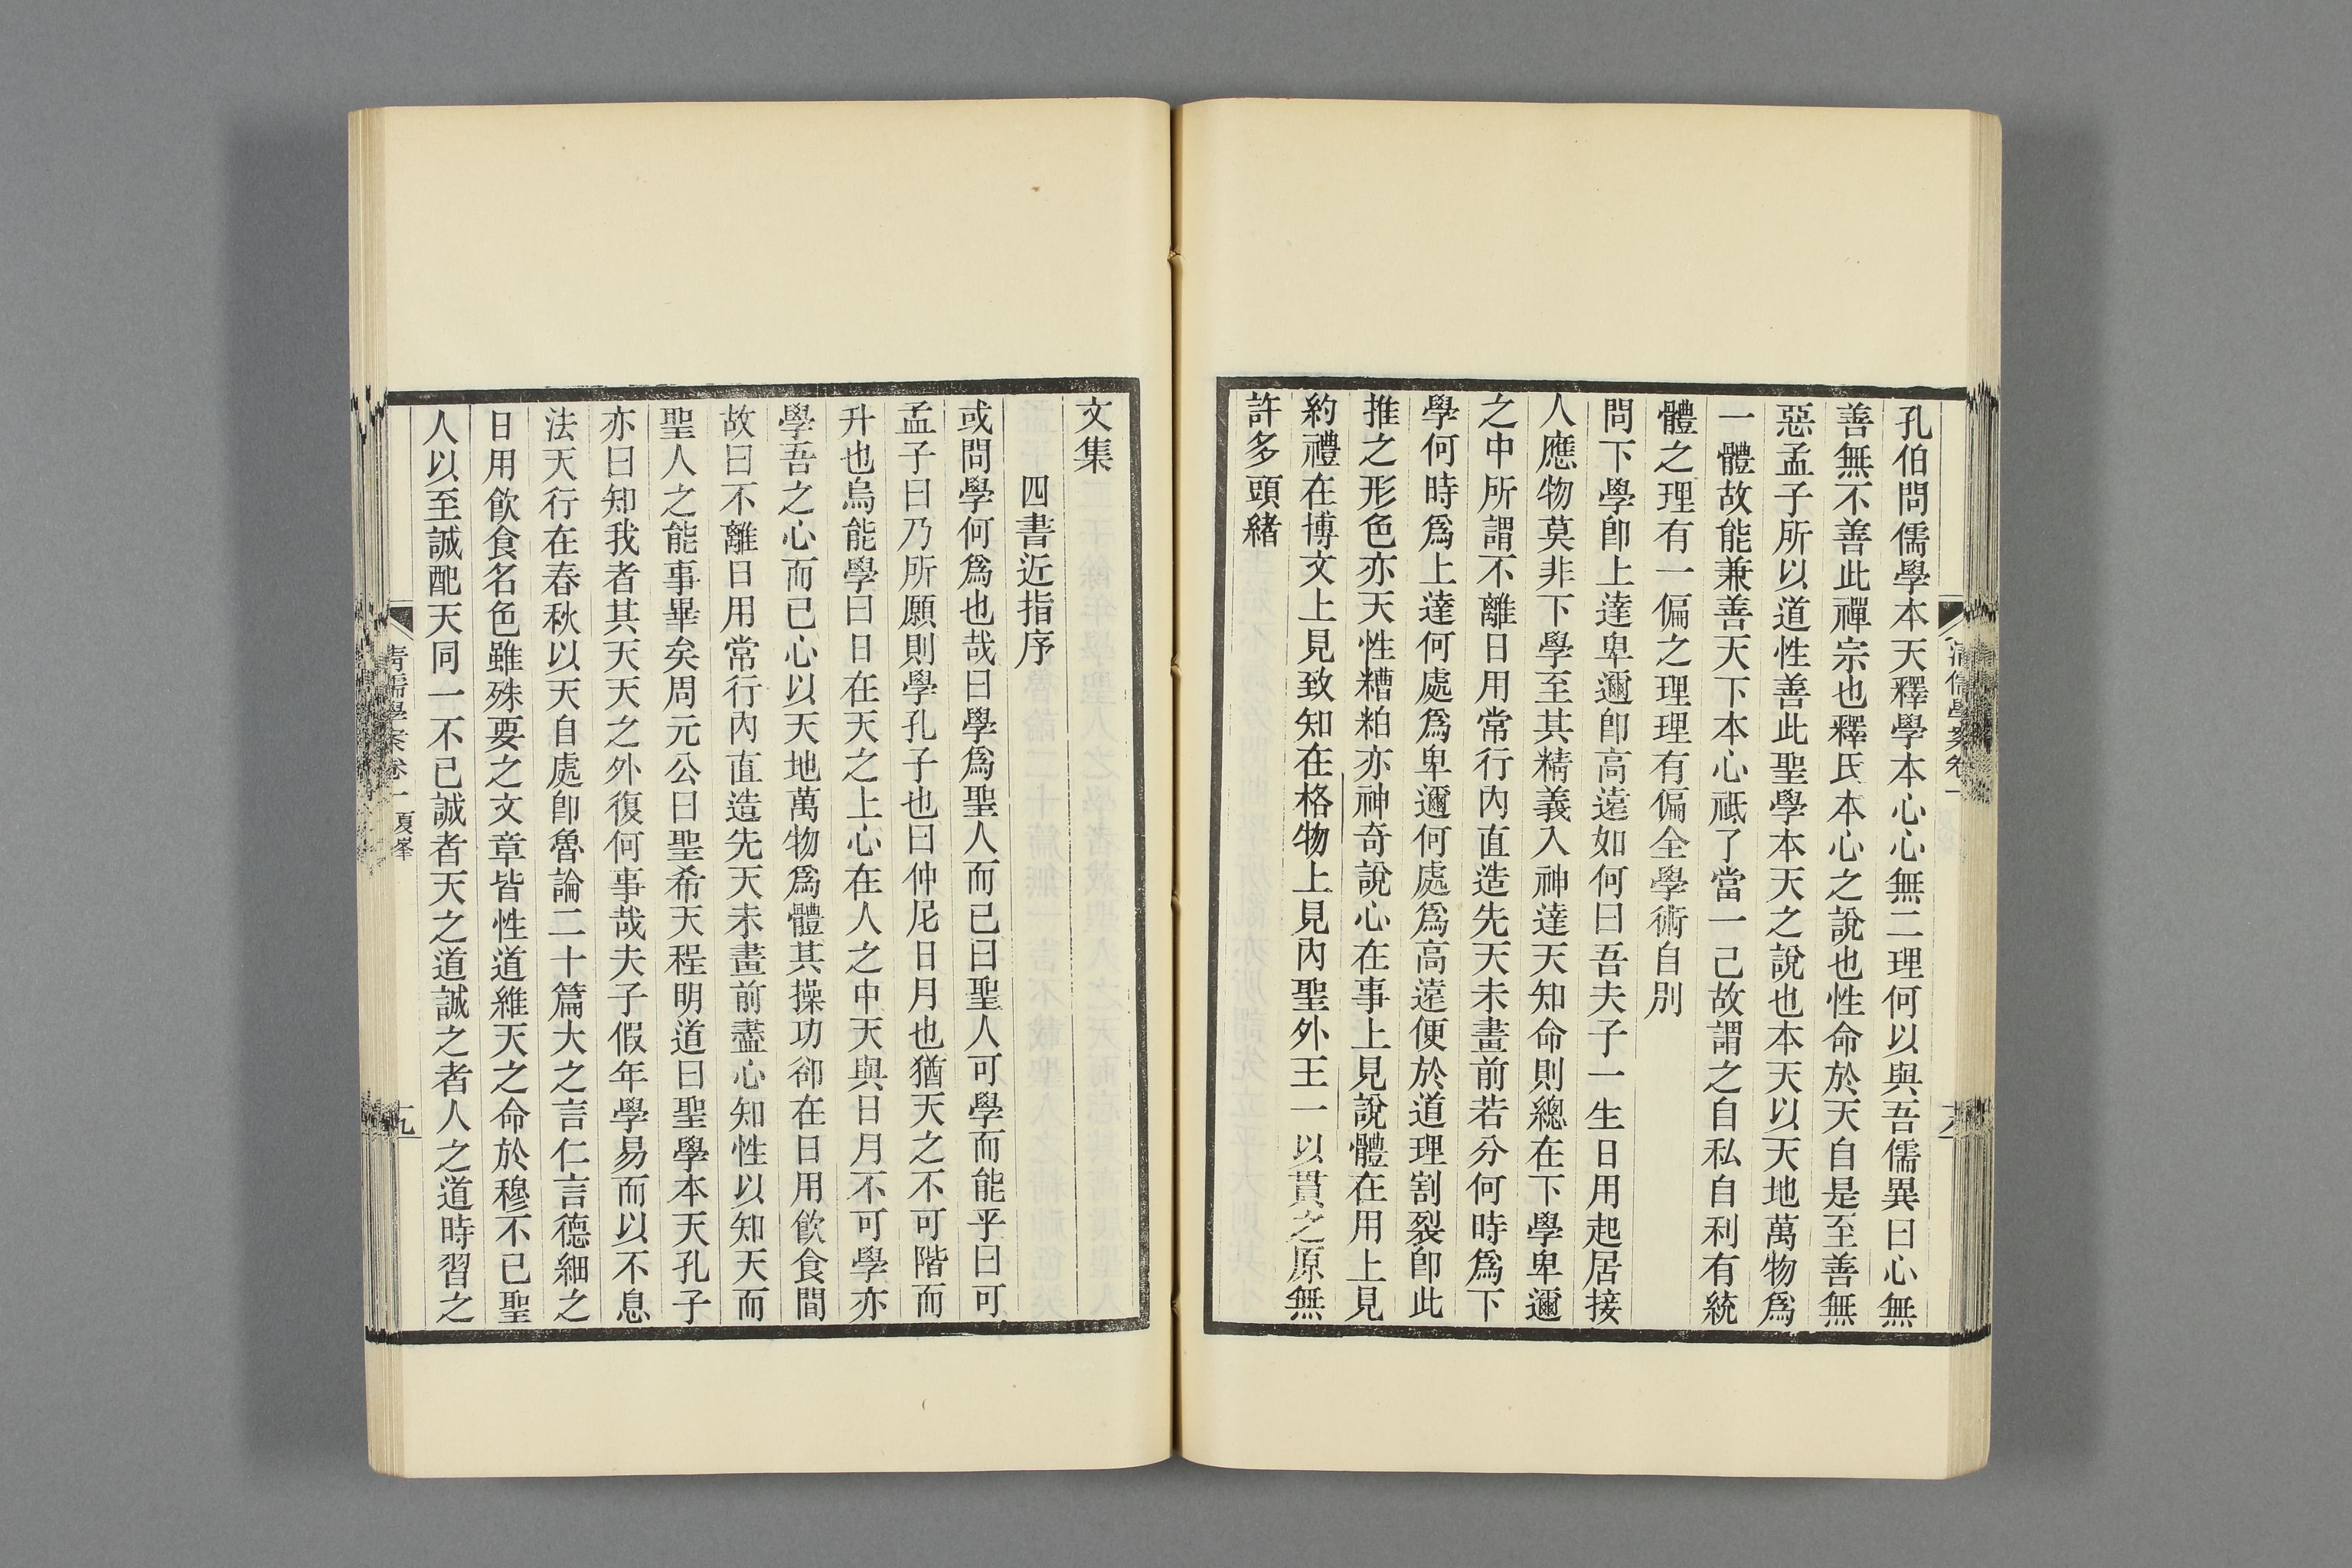 孔伯問儒學本天釋學本心心無二理何以與吾儒異曰心無
善無不善此禪宗也釋氏本心之說也性命於天自是至善無
惡孟子所以道性善此聖學本天之說也本天以天地萬物爲
一體故能兼善天下本心祗了當一己故謂之自私自利有統
體之理有一偏之理理有偏全學術自別
問下學卽上達卑邇卽高遠如何曰吾夫子一生日用起居接
人應物莫非下學至其精義入神達天知命則總在下學卑邇
之中所謂不離日用常行內直造先天未畫前若分何時爲下
學何時爲上達何處爲卑邇何處爲高遠便於道理割裂卽此
推之形色亦天性糟粕亦神奇說心在事上見說體在用上見
約禮在博文上見致知在格物上見內聖外王一以貫之原無
許多頭緒
文集
四書近指序
或問學何爲也哉曰學爲聖人而已曰聖人可學而能乎曰可
孟子曰乃所願則學孔子也曰仲尼日月也猶天之不可階而
升也烏能學曰日在天之上心在人之中天與日月不可學亦
學吾之心而已心以天地萬物爲體其操功卻在日用飲食間
故曰不離日用常行內直造先天未畫前盡心知性以知天而
聖人之能事畢矣周元公曰聖希天程明道曰聖學本天孔子
亦曰知我者其天天之外復何事哉夫子假年學易而以不息
法天行在春秋以天自處卽魯論二十篇大之言仁言德細之
日用飲食名色雖殊要之文章皆性道維天之命於穆不已聖
人以至誠配天同一不已誠者天之道誠之者人之道時習之
清儒學案卷一 夏峯
九